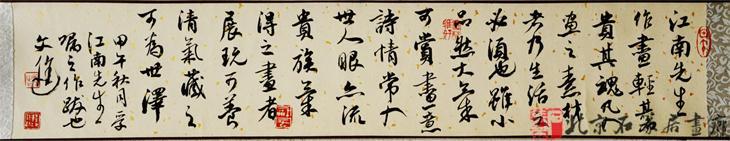 江南先生
作畫輕
貴其魂凡入
畫之素材
者乃生活之
必須也雖小
品然大氣
可賞畫意
詩情常
世人眼亦流
貴族氣
得之畫者
展玩可養
清氣藏之
可為世澤
甲午秋月
江南先生
囑之作跋也
文
北京石居畫廊